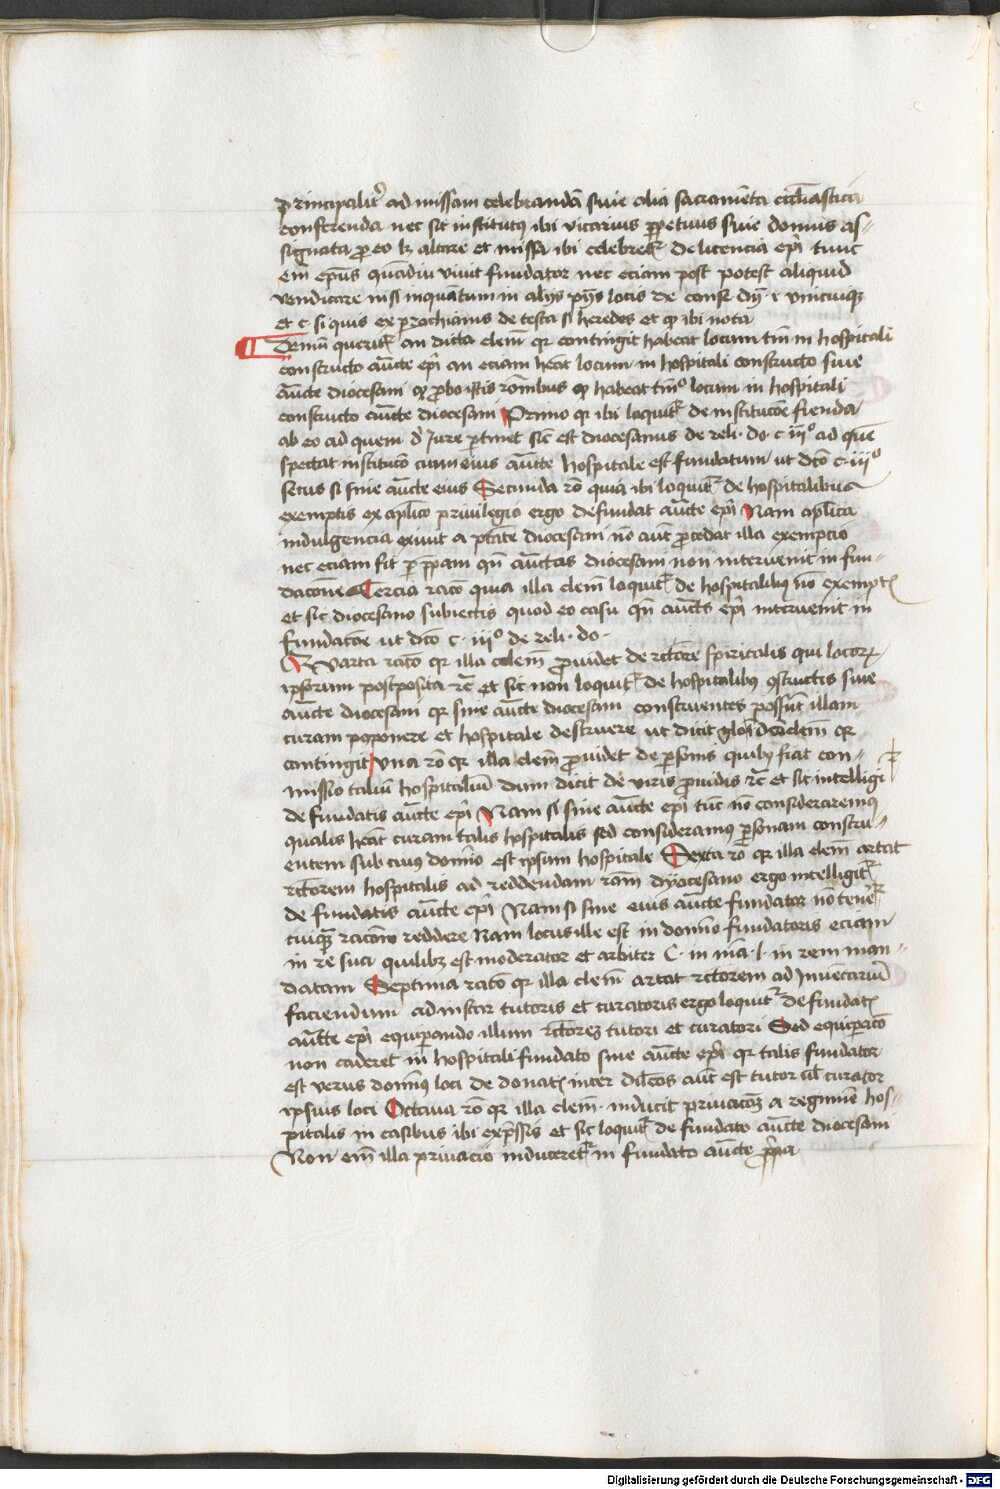 principalit᷑ ad missam celebrandā siue alia sacramēta eccl̄iastica
conferenda nec sit institutꝰ ibi vicarius ꝑpetuus siue domus as-
signata pro eo lꝫ altare et missa ibi celebret᷑ de licencia ep̄i tunc
em̄ ep̄us quādiu viuit fundator nec eciam post potest aliquid
vendicare nisi inquantum in alijs pijs locis de cons᷑ dij r vnicuiqꝫ
et c. si quis ex prochianis de testa si heredes et qꝫ ibi nota
Itemū querit᷑ an dicta clem̄ qr contingit habeat locum tm̄ in hospitali
constructo auc̄te ep̄i an eciam hēat locum in hospitali constructo siue
auc̄te diocesani qꝫ probo istis rōnibus qꝫ habeat tm̄o locum in hospitali
constructo auc̄te diocesani Primo qꝫ ibi loquit᷑ de institucōe fienda
ab eo ad quem de Iure ꝑtinet sic est diocesanus de reli. do. c iij° ad quē
spectat institucō cum eius auc̄te hospitale est fundatum ut dc̄o c. iij°
secus si sine auc̄te eius Secunda rō quia ibi loquit᷑ de hospitalibus
exemptis ex apl̄ico priuilegio ergo de fundat auc̄te ep̄i Nam apl̄ica
indulgencia exiuit a ptāte diocesani nō aut̄ procedat illa exempcio
nec eciam fit ꝑ ip̄am qn̄ auc̄tas diocesani non interuenit in fun-
dacōne Tercia racō quia illa clem̄ loquit᷑ de hospitalibꝰ nō exempt
et sic diocesano subiectis quod eo casu qn̄ auc̄ts ep̄i interuenit in
fundacōe ut dc̄o c. iij° de reli. do.
Quarta racō qr illa clem̄ prouidet de rc̄tore spiritalis qui locor
ipsorum postposita rc̄ et sic non loquit᷑ de hospitalibꝰ ꝯstructis siue
auc̄te diocesani qr sine auc̄te diocesani construentes possūt illam
curam pꝯponere et hospitale destruere ut dicit glo. in clem̄ qr
contingit Vna rō qr illa clem̄ prouidet de ꝑsonis quibꝰ fiat con-
missio taliū hospitaliū dum dicit de viris prouidis rc̄ et sic intelligi
de fundatis auc̄te ep̄i Nam si sine auc̄te ep̄i tūc nō consideraremꝰ
qualis hēat curam talis hospitalis sed consideramꝰ ꝑsonam constru-
entem sub cuius domīo est ipsum hospitale Sexta rō qr illa clem̄ artat
rc̄torem hospitalis ad reddendam rōm dyocesano ergo intelligit᷑
de fundatis auc̄te ep̄i Nam si sine eius auc̄te fundator nō tenet᷑
cuiqꝫ racōm reddere Nam locus ille est in domīo fundatoris eciam
in re sua quilibꝫ est moderator et arbiter C. in m̄a. l. in rem man-
datam Septima racō qr illa clem̄ artat rc̄torem ad Inuentariū
faciendum ad instar tutoris et curatoris ergo loquit᷑ de fundat
auc̄te ep̄i equiparando illum rc̄torem tutori et curatori Sed equiparacō
non caderet in hospitali fundato sine auc̄te ep̄i qr talis fundator
est verus domīꝰ loci de donat inter dil̄cos aut̄ est tutor ul̄ curator
ipsius loci Octaua rō qr illa clem̄ inducit priuacōꝫ a regimīe hos-
pitalis in casibus ibi exp̄ssis et sic loquit᷑ de fundato auc̄te diocesani
Non em̄ illa priuacio induceret᷑ in fundato auc̄te pp̄a
Digitalisierung gefördert durch die Deutsche Forschungsgemeinschaft - DFG